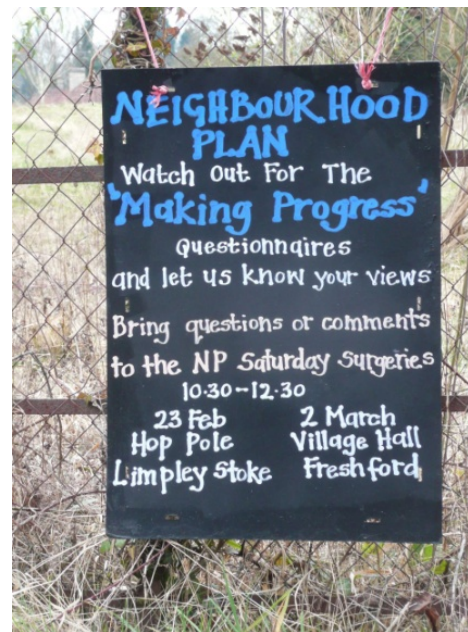 NEIGHBOURHOOD
PLAN
Watch Out For The
'Making Progress'
Questionnaires
and let us know your views
Bring questions or comments
to the NP Saturday Surgeries
10.30-12.30
23 Feb 2 March
Hop Pole Village Hall
Limpley Stoke Freshford